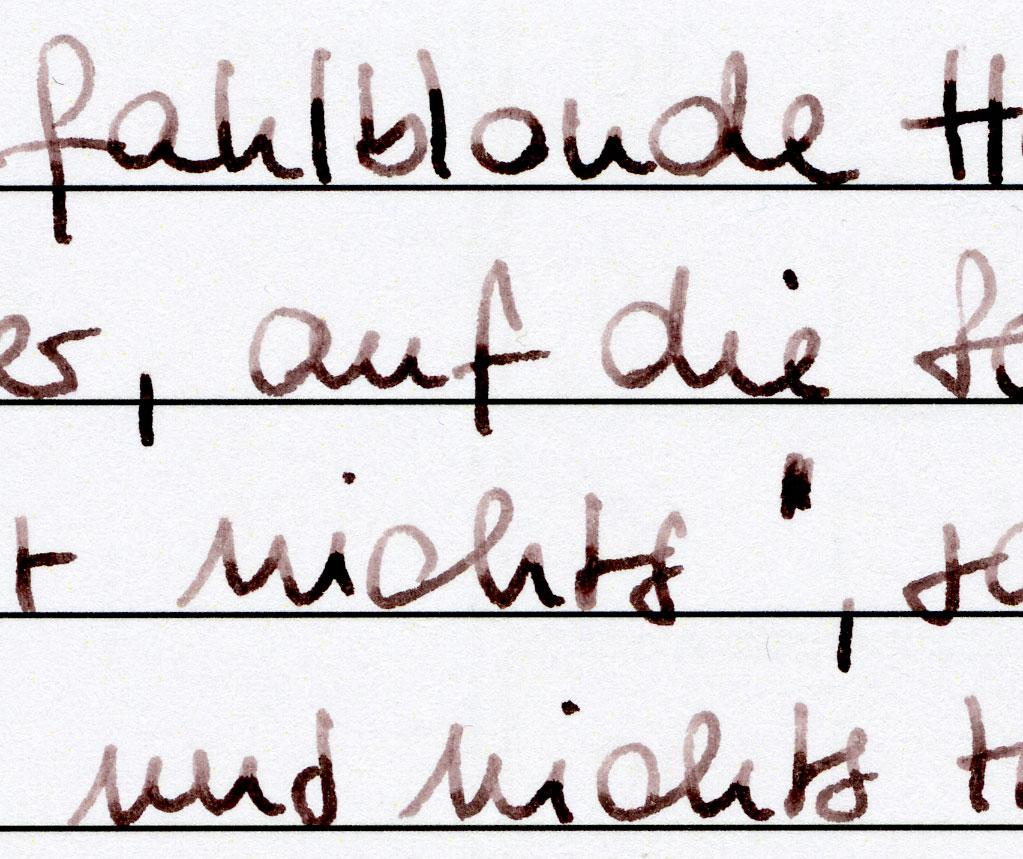 fahlblonde
er, auf die
t nichts",
und nichts